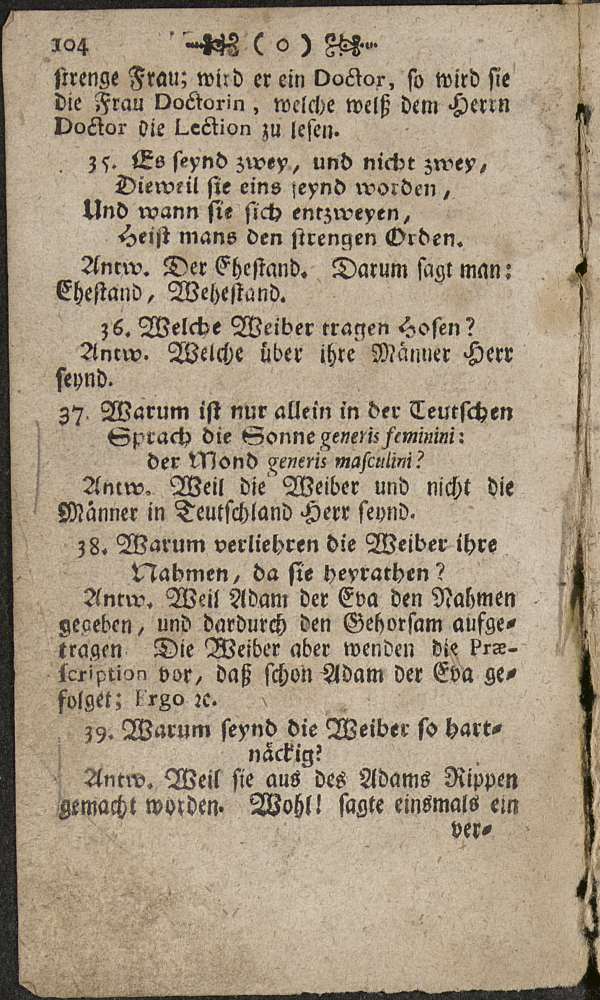 104 ( o )
strenge Frau; wird er ein Doctor, so wird sie
die Frau Doctorin, welche welß dem Herrn
Doctor die Lection zu lesen.
35. Es seynd zwey, und nicht zwey,
Dieweil sie eins seynd worden,
Und wann sie sich entzweyen,
Heist mans den strengen Orden.
Antw. Der Ehestand. Darum sagt man:
Ehestand, Wehestand.
36. Welche Weiber tragen Hosen?
Antw. Welche über ihre Männer Herr
seynd.
37. Warum ist nur allein in der Teutschen
Sprach die Sonne generis feminini:
der Mond generis masculini?
Antw. Weil die Weiber und nicht die
Männer in Teutschland Herr seynd.
38. Warum verliehren die Weiber ihre
Nahmen, da sie heyrathen?
Antw. Weil Adam der Eva den Nahmen
gegeben, und dardurch den Gehorsam aufge-
tragen Die Weiber aber wenden die Præ-
scription vor, daß schon Adam der Eva ge-
folget; Ergo ꝛc.
39. Warum seynd die Weiber so hart-
näckig?
Antw. Weil sie aus des Adams Rippen
gemacht worden. Wohl! sagte einsmals ein
ver-